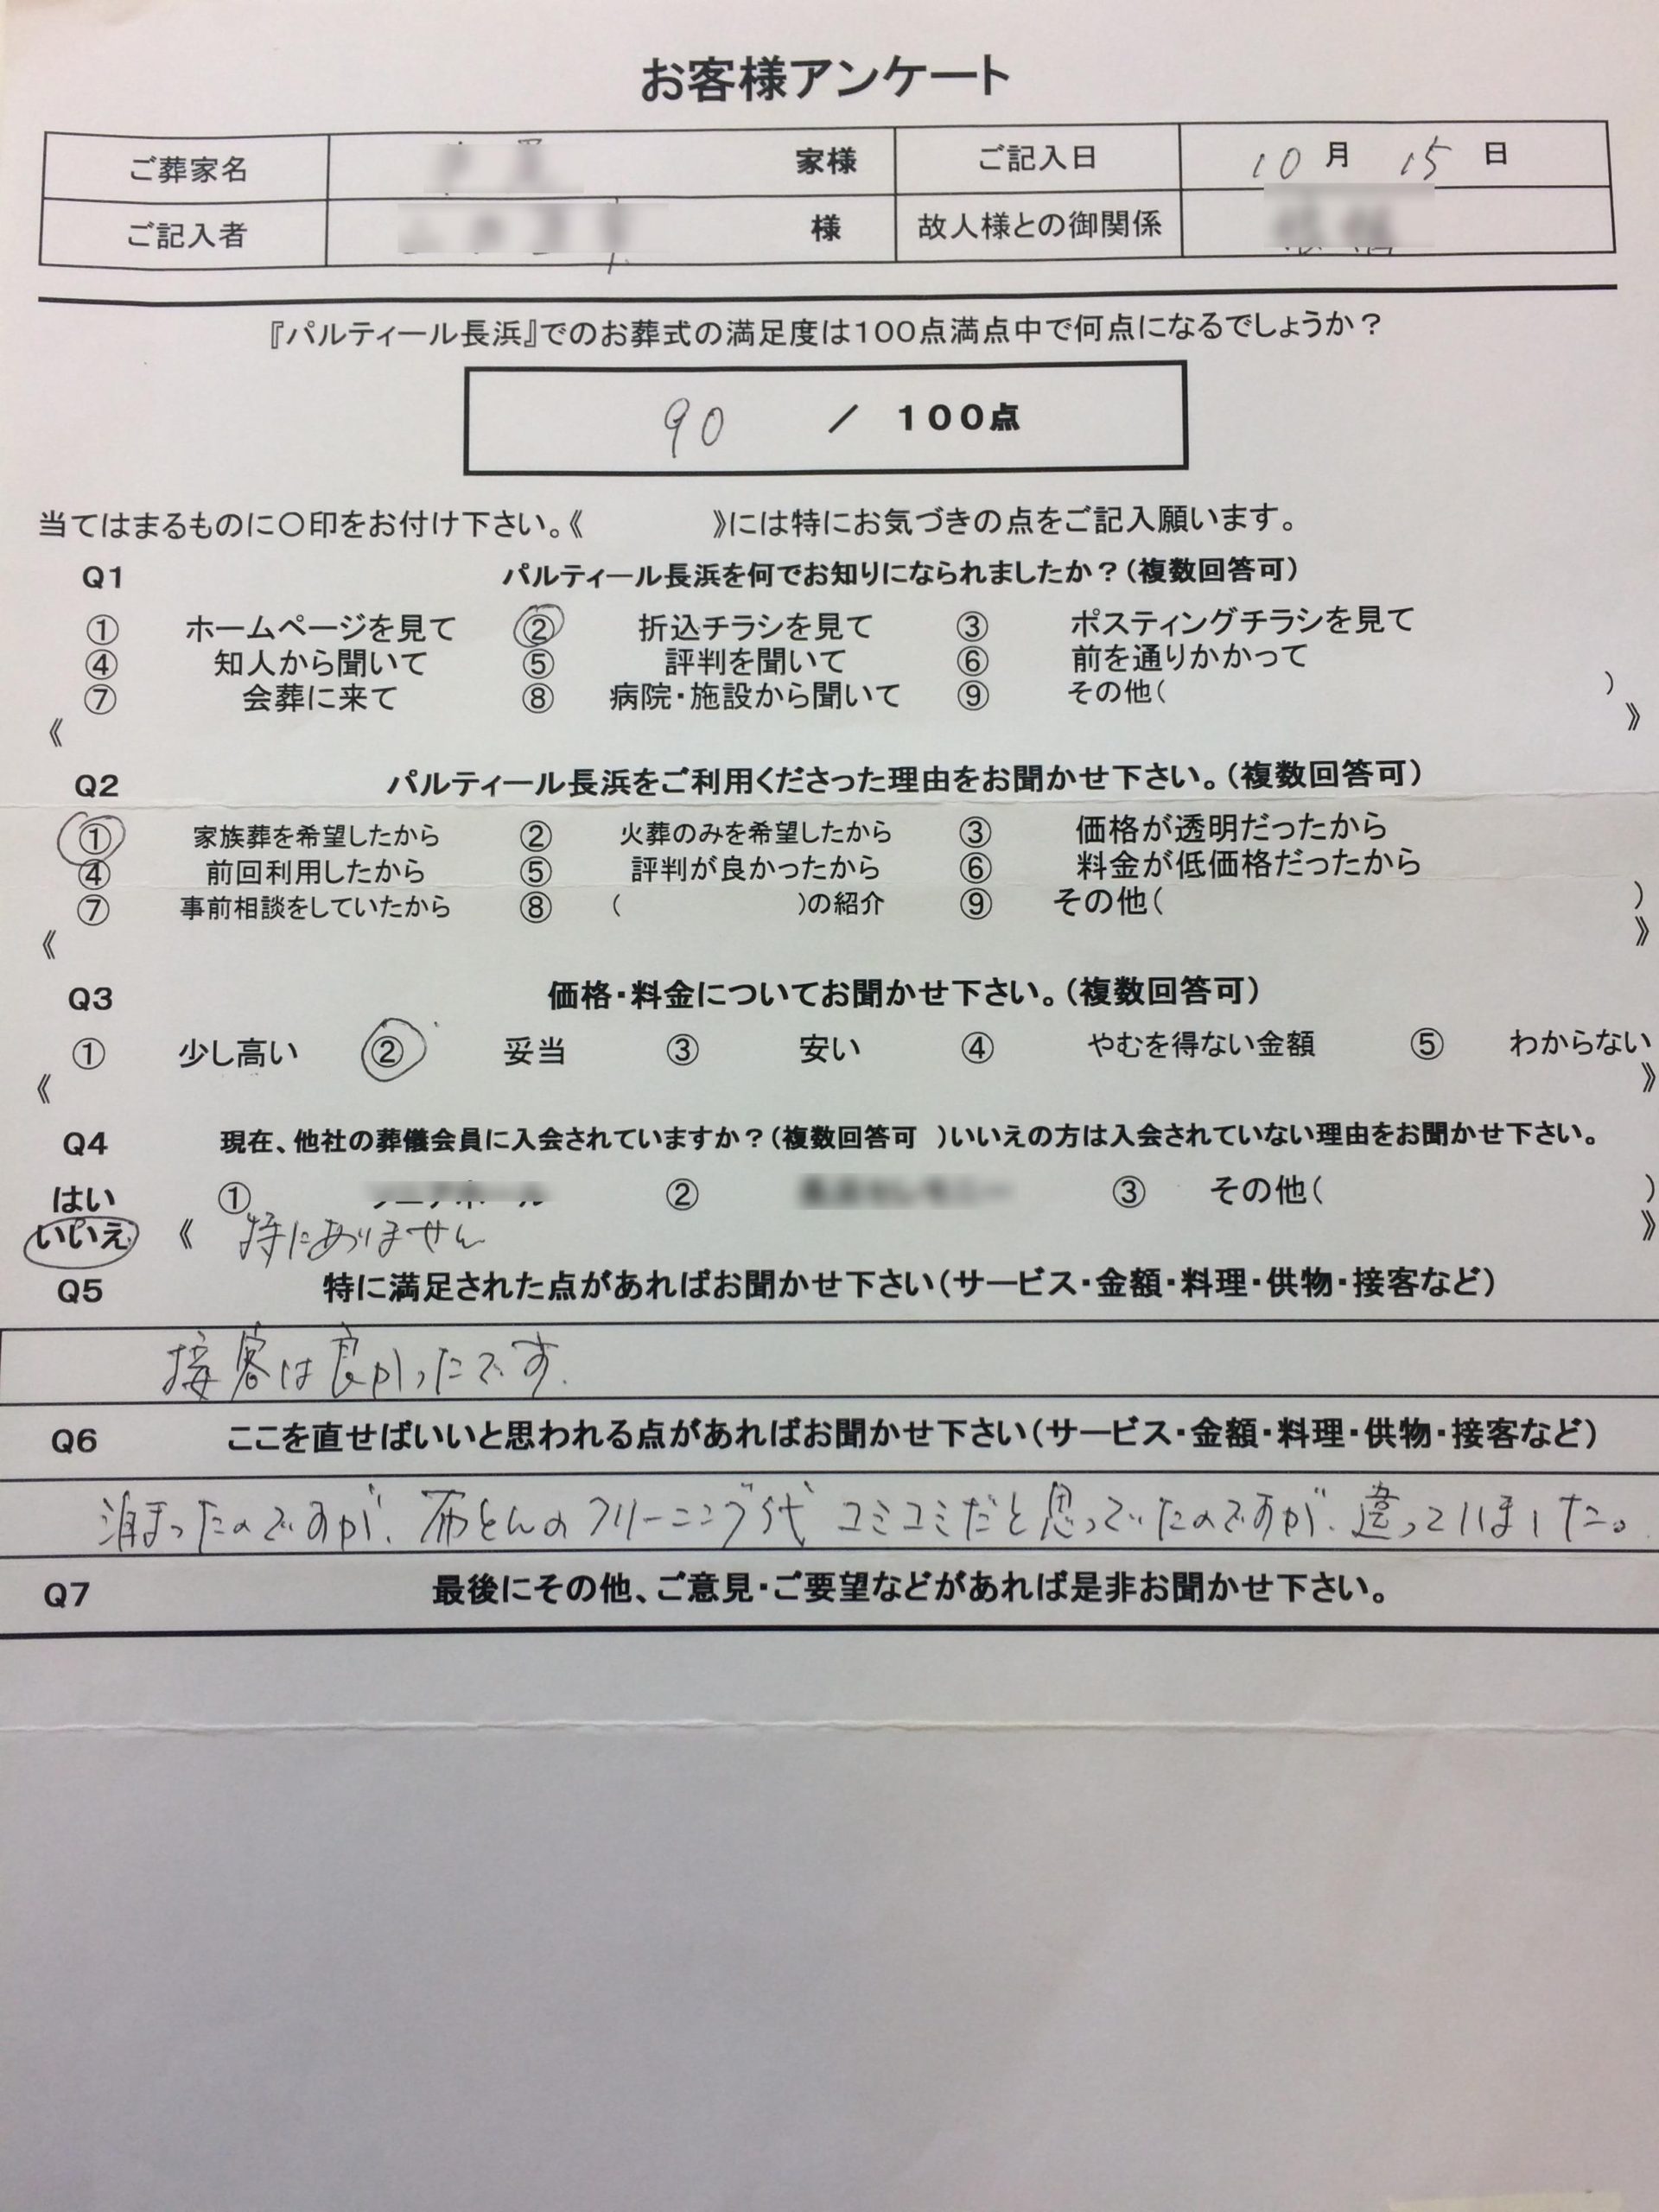 お客様アンケート
ご葬家名 家様 ご記入日 10月 15日
ご記入者 様 故人様との御関係
『パルティール長浜』でのお葬式の満足度は100点満点中で何点になるでしょうか？
90 / 100点
当てはまるものに○印をお付け下さい。《 》には特にお気づきの点をご記入願います。
Q1 パルティール長浜を何でお知りになられましたか？（複数回答可）
① ホームページを見て ② 折込チラシを見て ③ ポスティングチラシを見て
④ 知人から聞いて ⑤ 評判を聞いて ⑥ 前を通りかかって
⑦ 会葬に来て ⑧ 病院・施設から聞いて ⑨ その他（ ）
《 》
Q2 パルティール長浜をご利用くださった理由をお聞かせ下さい。（複数回答可）
① 家族葬を希望したから ② 火葬のみを希望したから ③ 価格が透明だったから
④ 前回利用したから ⑤ 評判が良かったから ⑥ 料金が低価格だったから
⑦ 事前相談をしていたから ⑧ （ ）の紹介 ⑨ その他（ ）
《 》
Q3 価格・料金についてお聞かせ下さい。（複数回答可）
① 少し高い ② 妥当 ③ 安い ④ やむを得ない金額 ⑤ わからない
《 》
Q4 現在、他社の葬儀会員に入会されていますか？（複数回答可 ）いいえの方は入会されていない理由をお聞かせ下さい。
はい ① ② ③ その他（ ）
いいえ 《 特にありません 》
Q5 特に満足された点があればお聞かせ下さい（サービス・金額・料理・供物・接客など）
接客は良かったです.
Q6 ここを直せばいいと思われる点があればお聞かせ下さい（サービス・金額・料理・供物・接客など）
泊まったのですが、布とんのクリーニング代 コミコミだと思っていたのですが、違っていました。
Q7 最後にその他、ご意見・ご要望などがあれば是非お聞かせ下さい。